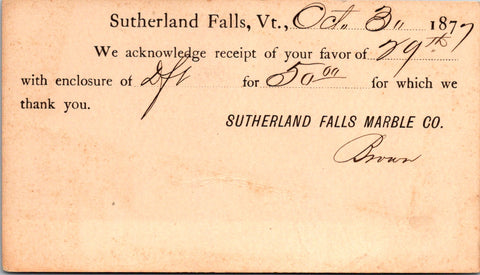 Sutherland Falls, Vt., Oct. 3. 1877
We acknowledge receipt of your favor of 29th
with enclosure of Dft for 50.00 for which we
thank you.
SUTHERLAND FALLS MARBLE CO.
Brown